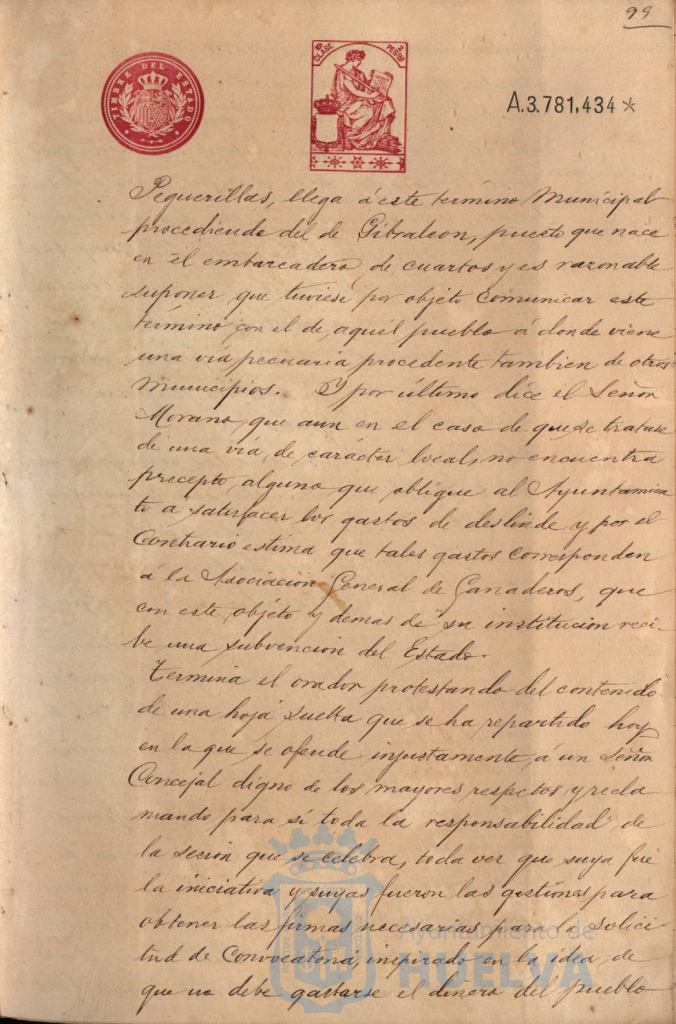 99
TIMBRE DEL ESTADO
10ª CLASE 2 PESTAS
A.3.781,434*
Peguerillas, llega á este término Municipal
procediendo del de Gibraleon, puesto que nace
en el embarcadero de cuartos y es razonable
suponer que tuviese por objeto comunicar este
término con el de aquél pueblo á donde viene
una via pecuaria procedente tambien de otros
Municipios. Y por último dice el Señor
Morano, que aun en el caso de que se tratase
de una via de carácter local, no encuentra
precepto alguno que obligue al Ayuntamien
to a satisfacer los gastos de deslinde y por el
Contrario estima que tales gastos corresponden
á la Asociación General de Ganaderos, que
con este objeto y demas de su institucion reci-
be una subvencion del Estado.
Termina el orador protestando del contenido
de una hoja suelta que se ha repartido hoy
en la que se ofende injustamente á un Señor
Concejal digno de los mayores respetos y recla
mando para sí toda la responsabilidad de
la sesion que se celebra, toda vez que suya fué
la iniciativa y suyas fueron las gestiones para
obtener las firmas necesarias para la solici-
tud de Convocatoria, inspirado en la idea de
que no debe gastarse el dinero del pueblo
Ayuntamiento de
HUELVA